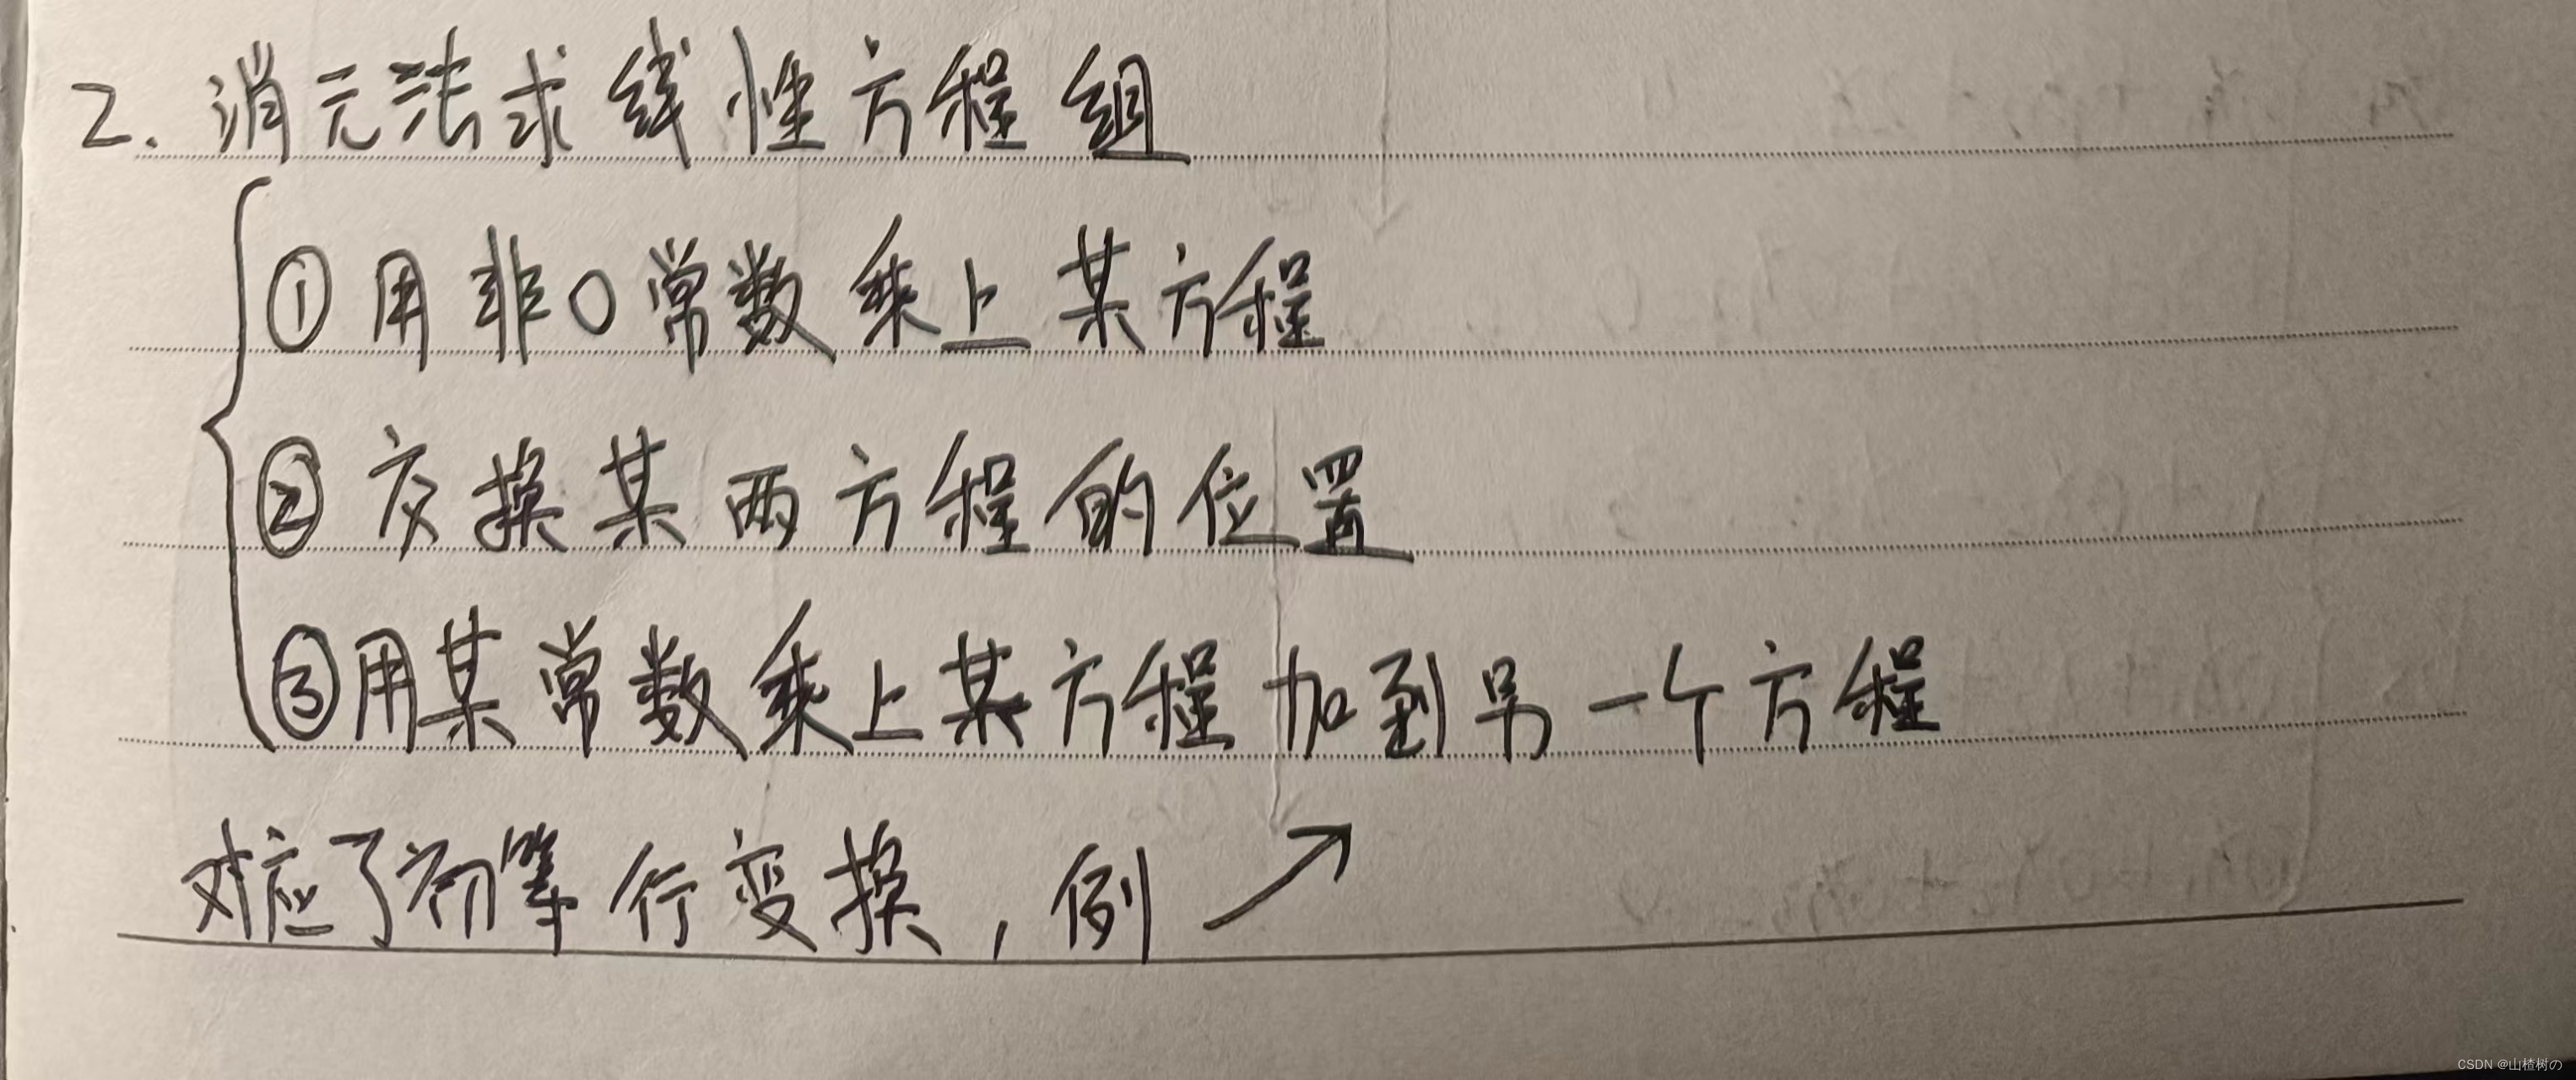 2. 消元法求线性方程组
①用非0常数乘上某方程
②交换某两方程的位置
③用某常数乘上某方程加到另一个方程
对应了初等行变换，例↗
CSDN @山楂树の